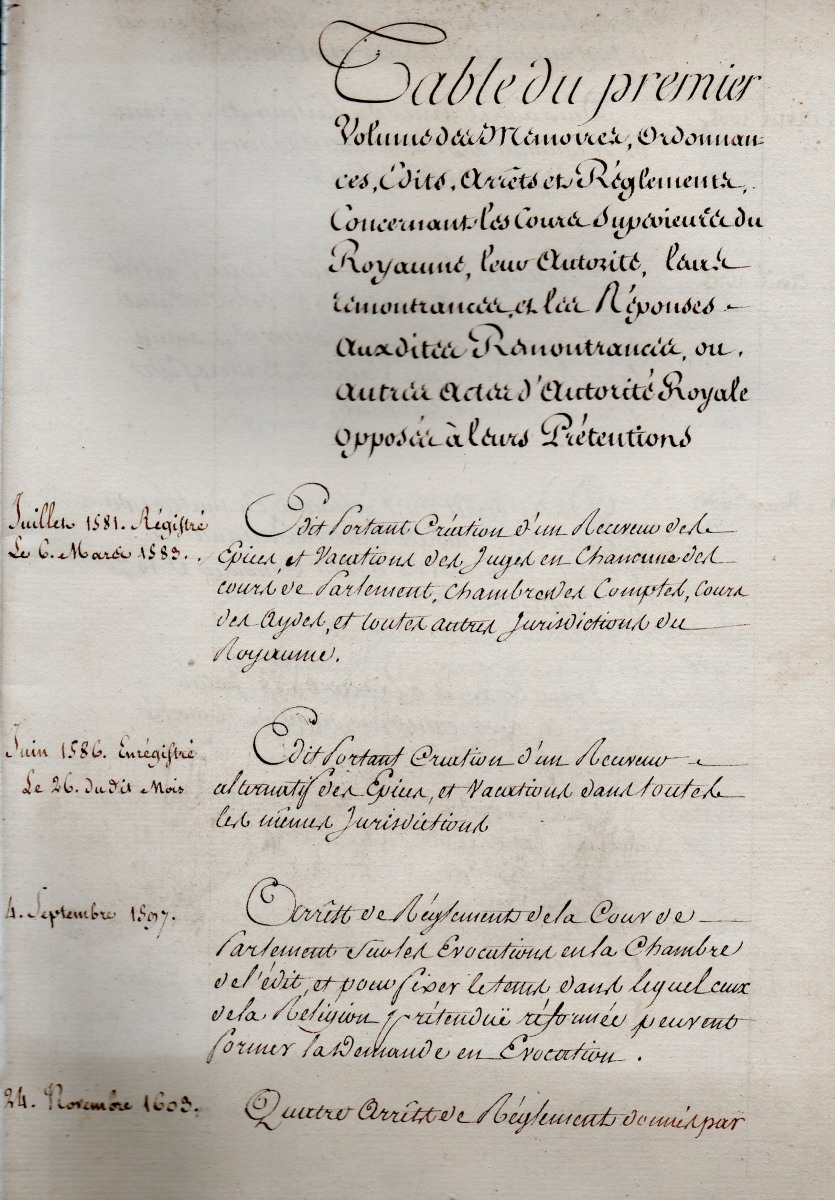 Table du premier
Volume des Mémoires, Ordonnan-
ces, Edits, Arrêts et Réglements,
Concernant les Cours Supérieures du
Royaume, leur Autorité, leurs
remontrances, et les Réponses
Auxdites Remontrances, ou
autres Actes d'Autorité Royale
opposés à leurs Prétentions
Juillet 1581. Régistré
Le 6. Mars 1583.
Edit Portant Création d'un Receveur des
Epices, et Vacations des Juges en Chacune des
cours de Parlement, Chambres des Comptes, Cours
des Aydes, et toutes autres Jurisdictions du
Royaume.
Juin 1586. Enrégistré
Le 26. dudit Mois
Edit Portant Création d'un Receveur
alternatif des Epices, et Vacations dans toutes
les mêmes Jurisdictions
4. Septembre 1597.
Arrêst de Réglement de la Cour de
Parlement sur les Evocations en la Chambre
de l'édit, et pour fixer le tems dans lequel ceux
de la Réligion prétenduë réformée peuvent
former la Demande en Evocation.
24. Novembre 1603.
Quatre Arrêsts de Réglement donnés par